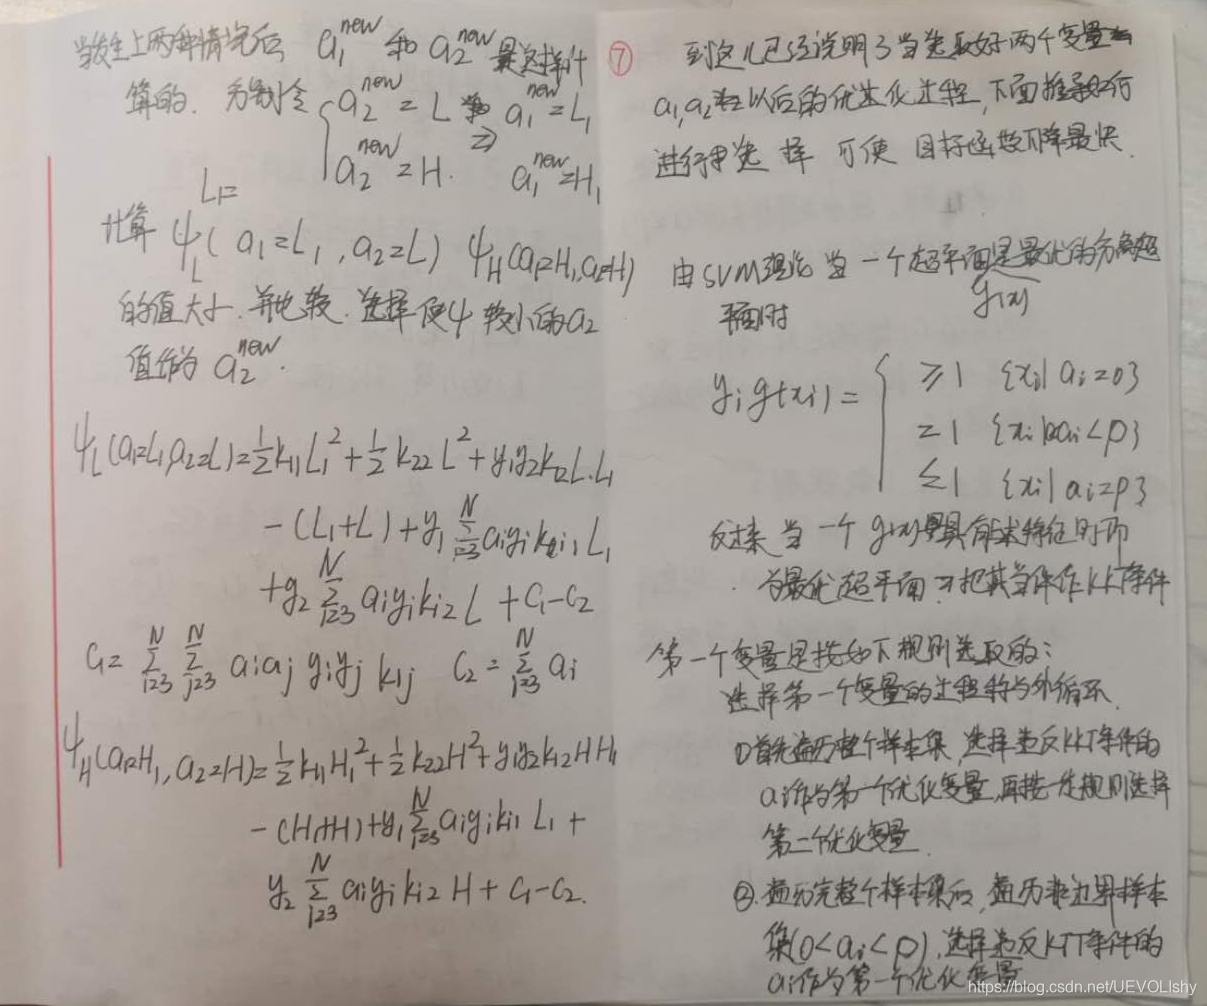 当发生上两种情况后 a₁^new 和 a₂^new 是这样计
算的. 分别令 { a₂^new = L ⇒ a₁^new = L₁
a₂^new = H. a₁^new = H₁
L₁=
计算 ψ_L( a₁=L₁ , a₂=L) ψ_H(a₁=H₁,a₂=H)
的值大小.并比较.选择使ψ较小的a₂
值作为 a₂^new.
ψ_L(a₁=L₁,a₂=L)=½k₁₁L₁²+½k₂₂L²+y₁y₂k₁₂L.L₁
-(L₁+L)+y₁ Σ_{i=3}^N aᵢyᵢkᵢ₁ L₁
+y₂ Σ_{i=3}^N aᵢyᵢkᵢ₂ L + C₁-C₂
C₁= Σ_{i=3}^N Σ_{j=3}^N aᵢaⱼ yᵢyⱼ kᵢⱼ C₂= Σ_{i=3}^N aᵢ
ψ_H(a₁=H₁,a₂=H)=½k₁₁H₁²+½k₂₂H²+y₁y₂k₁₂HH₁
-(H₁+H)+y₁ Σ_{i=3}^N aᵢyᵢkᵢ₁ L₁ +
y₂ Σ_{i=3}^N aᵢyᵢkᵢ₂ H + C₁-C₂.
⑦ 到这儿已经说明了当选取好两个变量
a₁,a₂ 以后的优化过程,下面推导如何
进行选择 可使 目标函数下降最快.
由SVM理论 当一个超平面是最优的分离超
g(x)
平面时
yᵢg(xᵢ) = { ≥1 {xᵢ| aᵢ=0}
=1 {xᵢ|0<aᵢ<p}
≤1 {xᵢ| aᵢ=p}
反过来 当一个 g(x) 具有 特征时 即
为最优超平面 可把其当作 KKT条件
第一个变量是按如下规则选取的:
选择第一个变量的过程称为外循环.
①首先遍历整个样本集,选择违反KKT条件的
aᵢ作为第一个优化变量,再按一定规则选择
第二个优化变量.
②.遍历完整个样本集后,遍历非边界样本
集(0<aᵢ<p),选择违反KTT条件的
aᵢ作为第一个优化变量
https://blog.csdn.net/UEVOLIshy